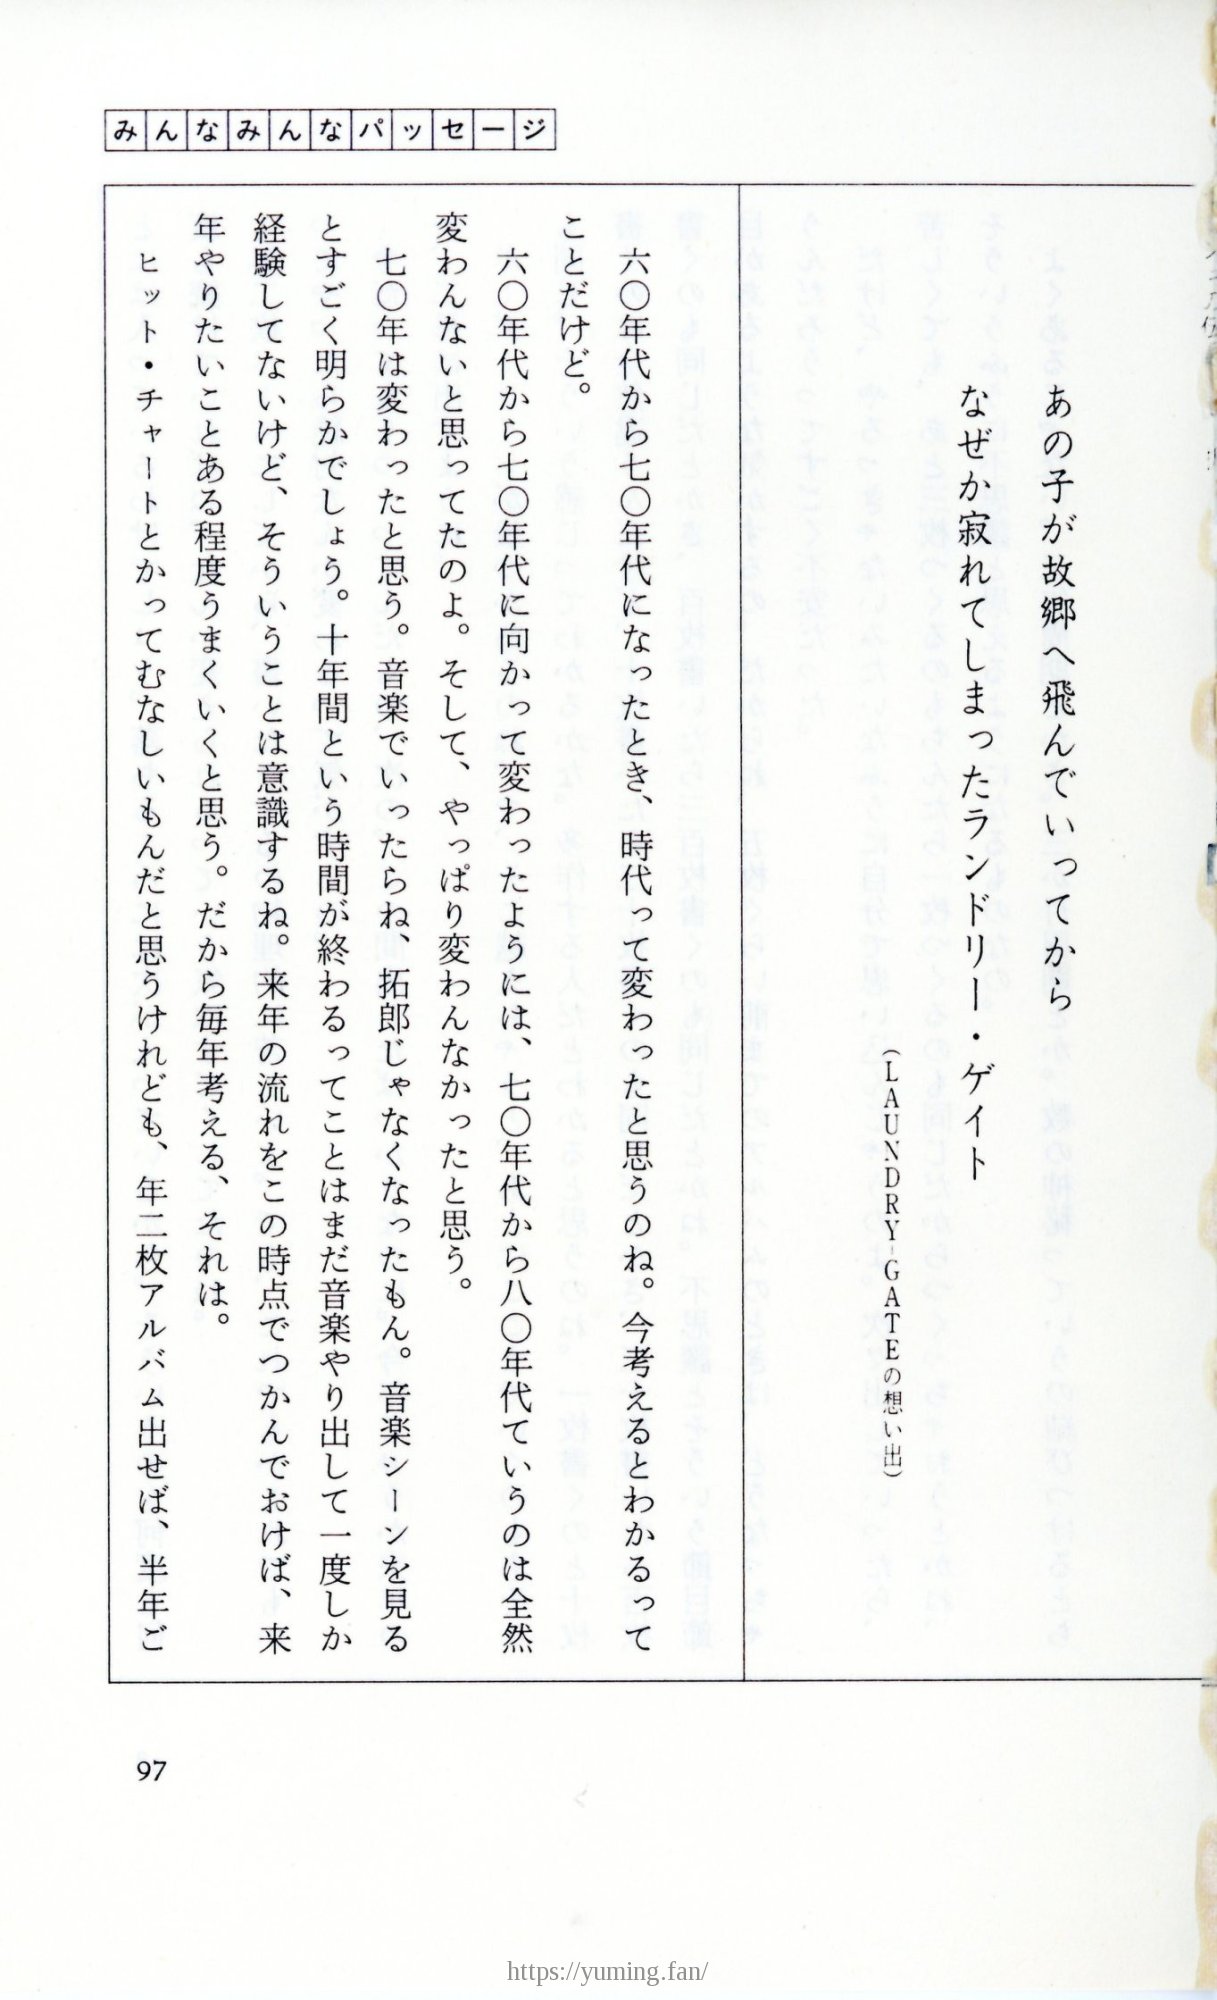 みんなみんなパッセージ
あの子が故郷へ飛んでいってから
なぜか寂れてしまったランドリー・ゲイト
（LAUNDRY-GATEの想い出）
六〇年代から七〇年代になったとき、時代って変わったと思うのね。今考えるとわかるって
ことだけど。
六〇年代から七〇年代に向かって変わったようには、七〇年代から八〇年代ていうのは全然
変わんないと思ってたのよ。そして、やっぱり変わんなかったと思う。
七〇年は変わったと思う。音楽でいったらね、拓郎じゃなくなったもん。音楽シーンを見る
とすごく明らかでしょう。十年間という時間が終わるってことはまだ音楽やり出して一度しか
経験してないけど、そういうことは意識するね。来年の流れをこの時点でつかんでおけば、来
年やりたいことある程度うまくいくと思う。だから毎年考える、それは。
ヒット・チャートとかってむなしいもんだと思うけれども、年二枚アルバム出せば、半年ご
97
https://yuming.fan/